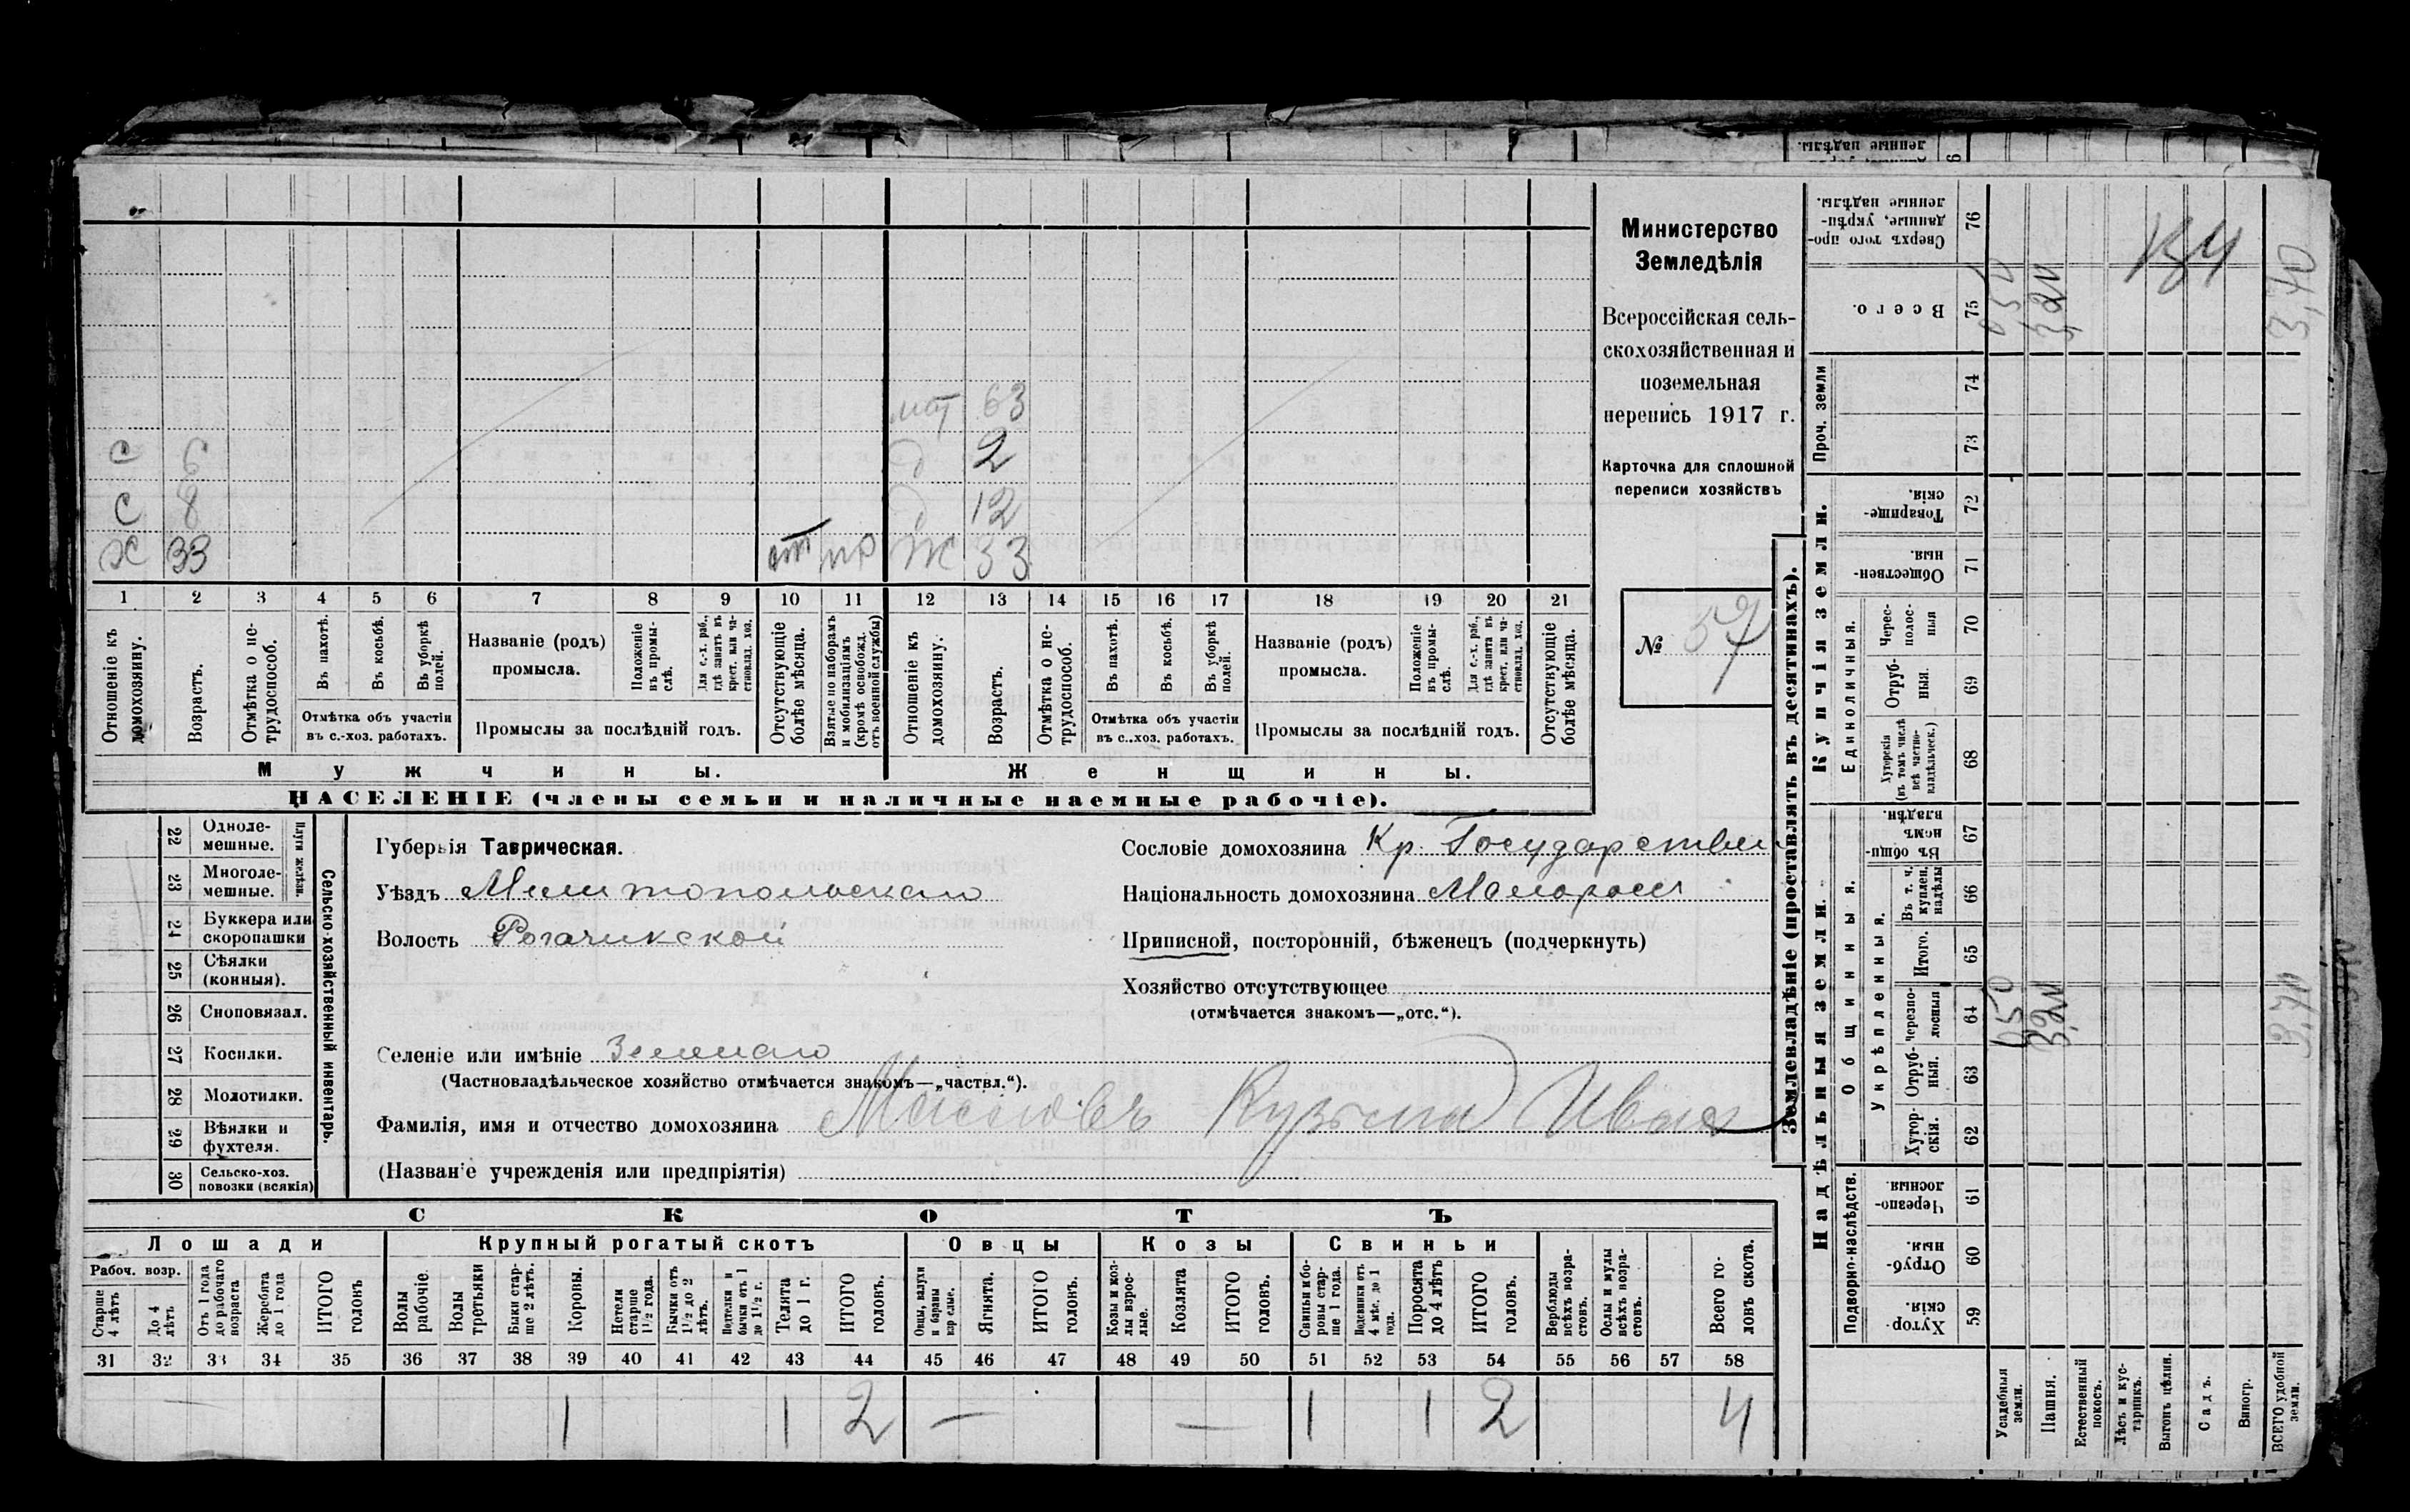 ленные надѣлы.
мат 63
с 6 д 2
с 8 д 12
Х 33 от пр Ж 33
1 2 3 4 5 6 7 8 9 10 11 12 13 14 15 16 17 18 19 20 21
Отношеніе къ домохозяину.
Возрастъ.
Отмѣтка о не-трудоспособ.
Въ пахотѣ.
Въ косьбѣ.
Въ уборкѣ полей.
Отмѣтка объ участіи
въ с.-хоз. работахъ.
Названіе (родъ)
промысла.
Положеніе въ промы-слѣ.
Для с.-х. раб., гдѣ занятъ въ крест. или ча-стновлад. хоз.
Промыслы за послѣдній годъ.
Отсутствующіе болѣе мѣсяца.
Взятые по наборамъ и мобилизаціямъ (кромѣ освобожд. отъ военной службы)
Отношеніе къ домохозяину.
Возрастъ.
Отмѣтка о не-трудоспособ.
Въ пахотѣ.
Въ косьбѣ.
Въ уборкѣ полей.
Отмѣтка объ участіи
въ с..хоз. работахъ.
Названіе (родъ)
промысла.
Положеніе въ промы-слѣ.
Для с.-х. раб., гдѣ занята въ крест. или ча-стновлад. хоз.
Промыслы за послѣдній годъ.
Отсутствующіе болѣе мѣсяца.
Мужчины. Женщины.
НАСЕЛЕНІЕ (члены семьи и наличные наемные рабочіе).
Министерство
Земледѣлія
Всероссійская сель-
скохозяйственная и
поземельная
перепись 1917 г.
Карточка для сплошной
переписи хозяйствъ
№ 57
22 Одноле-
мешные.
23 Многоле-
мешные.
Плуги желѣзн.
24 Буккера или
скоропашки
25 Сѣялки
(конныя).
26 Сноповязал.
27 Косилки.
28 Молотилки.
29 Вѣялки и
фухтеля.
30 Сельско-хоз.
повозки (всякія)
Сельско-хозяйственный инвентарь.
Губернія Таврическая.
Уѣздъ Мелитопольскаго
Волость Рогачикской
Селеніе или имѣніе Зеленаго
(Частновладѣльческое хозяйство отмѣчается знакомъ—„частвл.“).
Фамилія, имя и отчество домохозяина Кузьма Иван
(Названіе учрежденія или предпріятія)
Сословіе домохозяина Кр. Государствен
Національность домохозяина Малоросс
Приписной, посторонній, бѣженецъ (подчеркнуть)
Хозяйство отсутствующее
(отмѣчается знакомъ—„отс.“).
СКОТЪ
Лошади Крупный рогатый скотъ Овцы Козы Свиньи
Рабоч. возр.
Старше 4 лѣтъ
До 4 лѣтъ
Отъ 1 года до рабочаго возраста
Жеребята до 1 года
ИТОГО головъ
Волы рабочіе
Волы третьяки
Быки стар-ше 2 лѣтъ.
Коровы.
Нетели старше 1½ года.
Бычки отъ 1½ до 2 лѣтъ.
Подтелки и бычки отъ 1 до 1½ г.
Телята до 1 г.
ИТОГО головъ.
Овцы, валухи и бараны взрослые.
Ягнята.
ИТОГО головъ.
Козы и коз-лы взрос-лые.
Козлята
ИТОГО головъ.
Свиньи и бо-ровы стар-ше 1 года.
Подсвинки отъ 4 мѣс. до 1 года.
Поросята до 4 лѣтъ
ИТОГО головъ.
Верблюды всѣхъ возра-стовъ.
Ослы и мулы всѣхъ возра-стовъ.
Всего го-ловъ скота.
31 32 33 34 35 36 37 38 39 40 41 42 43 44 45 46 47 48 49 50 51 52 53 54 55 56 57 58
— 1 1 2 — — 1 1 2 4
Землевладѣніе (проставлять въ десятинахъ).
Надѣльныя земли. Купчія земли. Проч. земли
Подворно-наслѣдств.
Общинныя.
Укрѣпленныя.
Единоличныя.
Сверхъ того про-данные, укрѣп-ленные надѣлы. 76
Всего. 75
74
73
Товарище-скія. 72
Обществен-ныя. 71
Черес-полос-ныя 70
Отруб-ныя. 69
Хуторскія (въ томъ числѣ всѣ частно-владѣльческ.) 68
Въ общин-номъ владѣн. 67
Въ т. ч. куплен. надѣлы 66
Итого. 65
черезпо-лосныя 64
Отруб-ныя. 63
Хутор-скія. 62
Черезпо-лосныя. 61
Отруб-ныя. 60
Хутор-скія. 59
Усадебныя земли.
Пашня.
Естественный покосъ.
Лѣсъ и кус-тарникъ.
Выгонъ цѣлин.
Садъ.
Виногр.
ВСЕГО удобной земли.
050
3,40